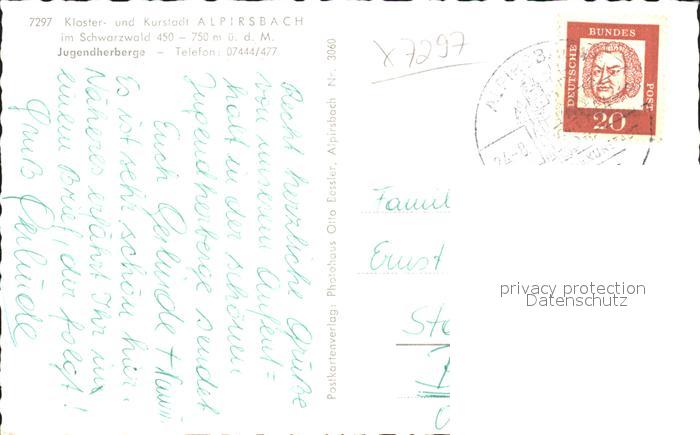 7297 Kloster- und Kurstadt ALPIRSBACH
im Schwarzwald 450 – 750 m ü. d. M.
Jugendherberge – Telefon: 07444/477
Recht herzliche Grüße
von unserem Aufent=
halt in der schönen
Jugendherberge sendet
Euch Gerlinde +
Es ist sehr schön hier.
Näheres erfährt Ihr in
einem Brief, der folgt!
Gruß Gerlinde
Postkartenverlag: Photohaus Otto Dessler, Alpirsbach Nr. 3060
X 7297
DEUTSCHE BUNDES POST
20
Famil
Ernst
Ste
privacy protection
Datenschutz